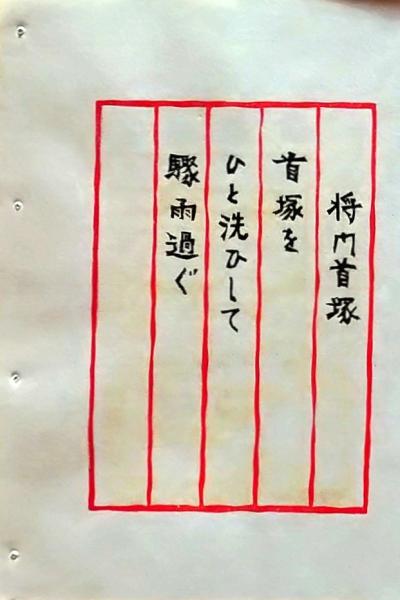 将門首塚
首塚を
ひと洗ひして
驟雨過ぐ